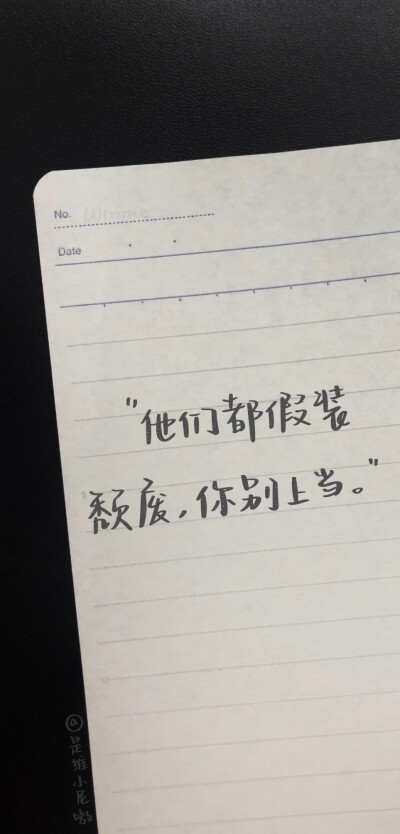 No.
Date
"他们都假装
颓废，你别上当。"
@是维小尼呦